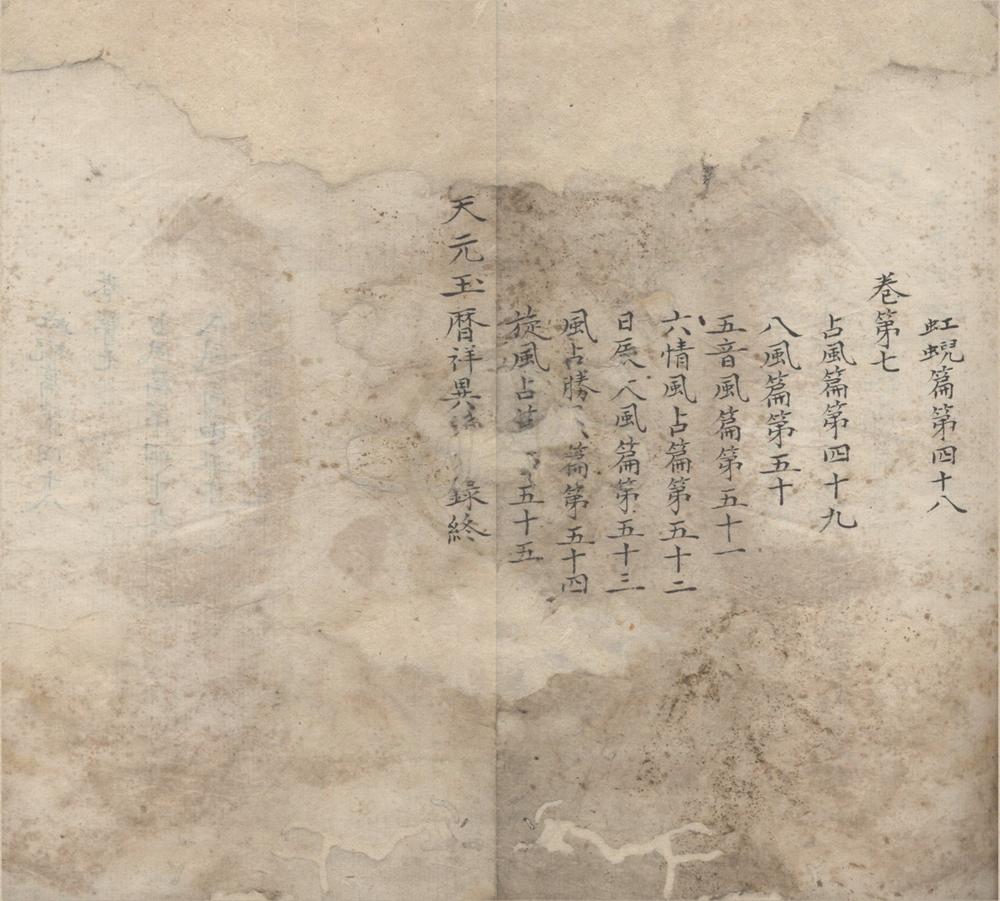 虹蜺篇第四十八
卷第七
占風篇第四十九
八風篇第五十
五音風篇第五十一
六情風占篇第五十二
日辰八風篇第五十三
風占勝篇第五十四
旋風占五十五
天元玉曆祥異錄終